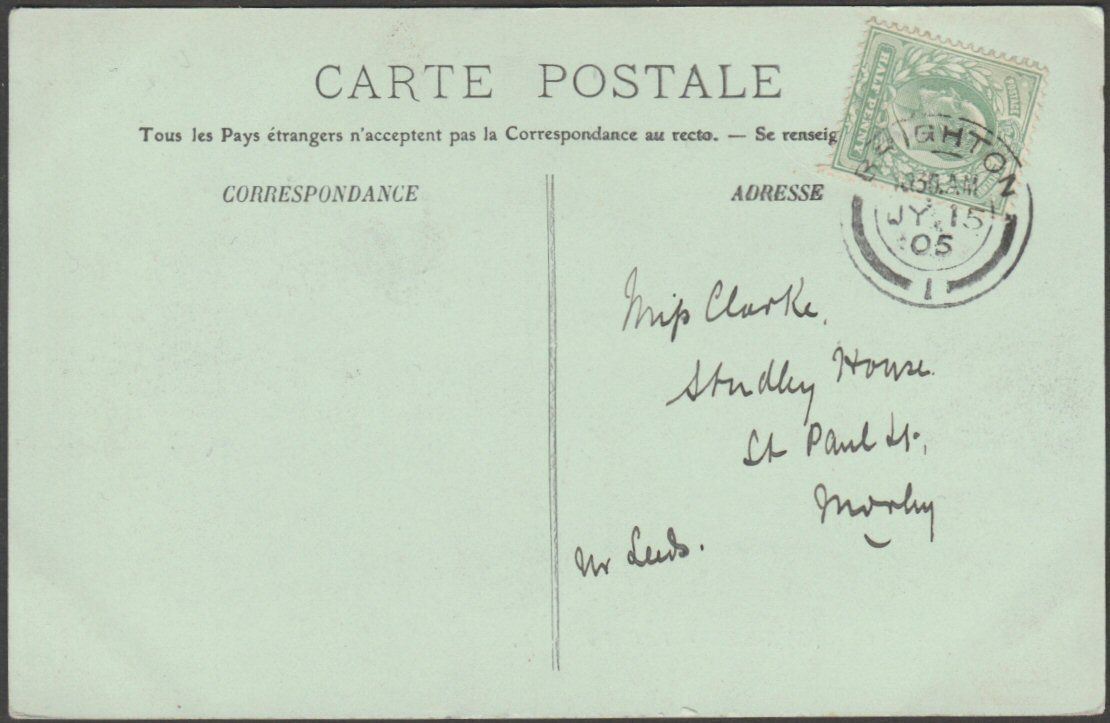 CARTE POSTALE
Tous les Pays étrangers n'acceptent pas la Correspondance au recto. — Se renseig
CORRESPONDANCE
ADRESSE
HALF PENNY
POSTAGE
BRIGHTON
1030.AM
JY 15
05
1
Miss Clarke,
Studley House.
St Paul St,
Morley
Nr Leeds.